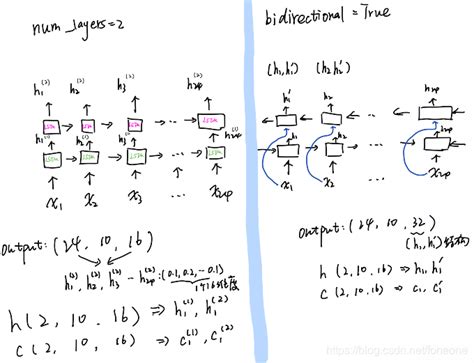 num_layers=2
h₁⁽²⁾ h₂⁽²⁾ h₃⁽²⁾
LSTM LSTM LSTM ... LSTM
h₁⁽¹⁾ h₂⁽¹⁾
LSTM LSTM LSTM ... LSTM
x₁ x₂ x₃ ...
output: (24, 10, 16)
h₁⁽²⁾, h₂⁽²⁾, h₃⁽²⁾
(0.1, 0.2, -0.1)
h(2, 10, 16) ⇒ h₁⁽¹⁾, h₁⁽²⁾
c(2, 10, 16) ⇒ c₁⁽¹⁾, c₁⁽²⁾
bidirectional=True
(h₁,h₁') (h₂h₂')
h₁' h₂'
h₁ h₂
x₁ x₂ ...
output: (24, 10, 32)
(h₁,h₁')
h(2,10,16) ⇒ h₁,h₁'
c(2,10,16) ⇒ c₁,c₁'
https://blog.csdn.net/foneone